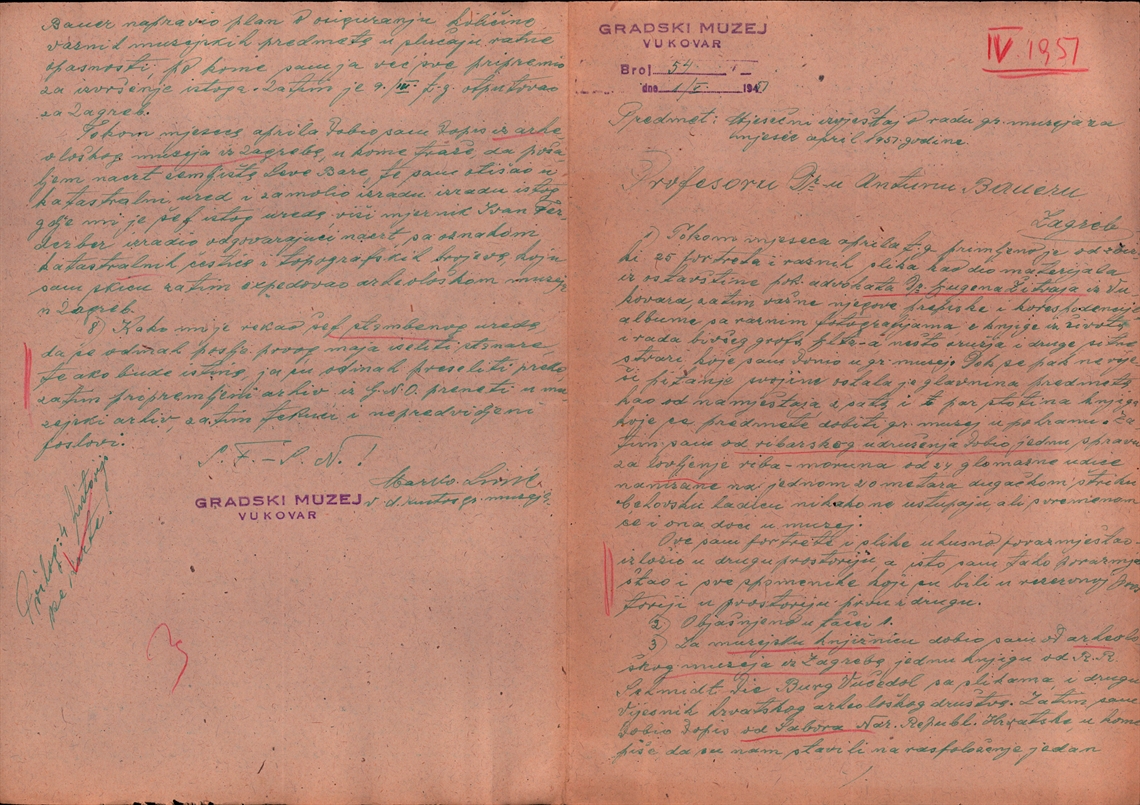 GRADSKI MUZEJ
VUKOVAR
Broj 54
dne 1/V 1951
IV. 1951
Predmet: Mjesečni izvještaj o radu gr. muzeja za
mjesec april 1951 godine.
Profesoru Dr-u Antunu Baueru
Zagreb
1) Tokom mjeseca aprila t.g. primljeno je od
25 portreta i raznih slika kao dio materijala
iz ostavštine pok. advokata Dr. Eugena iz Vu
kovara, zatim važne njegove prepiske i korespodencije
albume sa raznim fotografijama i knjige iz života
i rada bivšeg grofa Eltz-a nešto oružja i druge sitne
stvari koje sam donio u gr. muzej. Dok se pak ne rije
ši pitanje svojine ostala je glavnina predmeta
kao od namještaja i sata, i t par stotina knjiga
koje će predmete dobiti gr. muzej u pohranu. Za
tim sam od ribarskog udruženja dobio jednu spravu
za lovljenje riba-moruna od 24 glomazne udice
nanizane na jednom 20 metara dugačkom štriku
Čehovsku ladicu nikako ne ustupaju ali svremenom
će i ona doći u muzej.
Ove sam portrete i slike ukusno porazmještao
izložio u drugu prostoriju, a isto sam tako porazmje
štao i sve spomenike koji su bili u rezervnoj pros
toriji u prostoriju prvu i drugu.
2) Objašnjeno u tački 1.
3) Za muzejsku knjižnicu dobio sam od arheolo
škog muzeja iz Zagreba, jednu knjigu od R.R.
Schmidt Die Burg Vučedol sa slikama i drugu
Vijesnik hrvatskog arheološkog društva. Zatim sam
dobio dopis od Sabora Nar. Republ. Hrvatske, u kome
piše da su nam stavili na raspoloženje jedan
Bauer napravio plan o osiguranju količine
važnih muzejskih predmeta u slučaju ratne
opasnosti, po kome sam ja već sve pripremio
za izvršenje istoga. Zatim je 9./III t.g. otputovao
za Zagreb.
Tokom mjeseca aprila dobio sam dopis iz arhe
ološkog muzeja iz Zagreba, u kome traže, da poša
ljem nacrt zemljišta Leve Bare, te sam otišao u
katastralni ured i zamolio izradu izradu istog
gdje mi je šef istog ureda viši mjernik Ivan
izradio odgovarajući nacrt, sa oznakom
katastralnih čestica i topografskih brojeva koju
sam skicu zatim expedovao arheološkom muzeju
u Zagreb.
8) Kako mi je rekao šef stambenog ureda
da će odmah poslje prvog maja iseliti stanare,
te ako bude istina, ja ću odmah preseliti preko
zatim pripremljeni arhiv iz G.N.O. preneti u mu
zejski arhiv, zatim tekući i nepredvidjeni
poslovi.
S. F. - S. N.!
Marko
v.d. kustos g. muzeja
GRADSKI MUZEJ
VUKOVAR
Prilog: 4 historijs
ke karte!